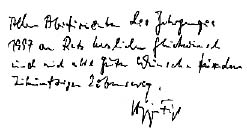 Allen Abiturienten des Jahrganges
1957 an Rats herzlichen Glückwunsch
und viel alle guten Wünsche für den
zukünftigen Lebensweg.